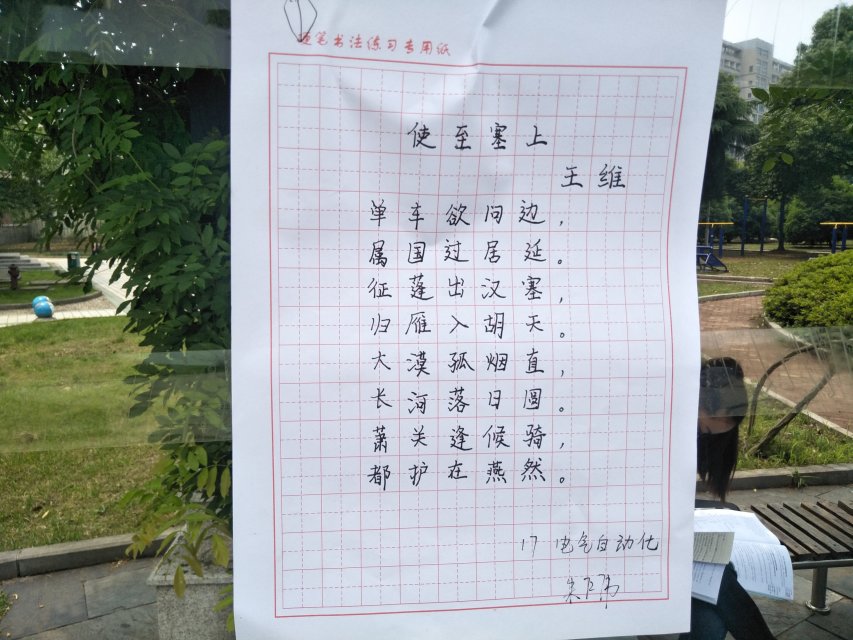 硬笔书法练习专用纸
使至塞上
王维
单车欲问边，
属国过居延。
征蓬出汉塞，
归雁入胡天。
大漠孤烟直，
长河落日圆。
萧关逢候骑，
都护在燕然。
17 电气自动化